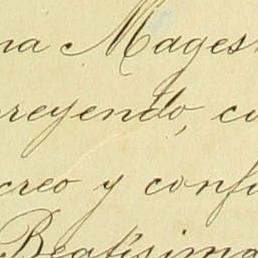 na Magest
creyendo, co
creo y confi
Beatísima